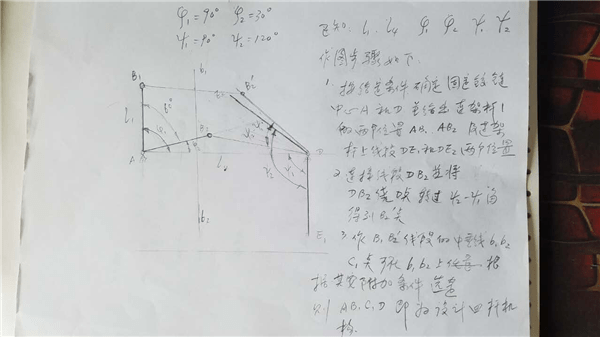 φ₁=90° φ₂=30°
ψ₁=90° ψ₂=120°
已知. l₁ l₄ φ₁ φ₂ ψ₁ ψ₂
作图步骤如下.
1. 按给定条件确定固定铰链
中心A和D 并给出连架杆1
的两个位置 AB₁ AB₂ 及连架
杆上线段DE₁和DE₂两个位置
2 连接线段DB₂并将
DB₂绕点 转过 ψ₂-ψ₁角
得到B₂'点
3 作B₁B₂'线段的中垂线b₁b₂
C₁点可在b₁b₂上任意 根
据其实附加条件选定
则 AB₁C₁D 即为设计四杆机
构.
B₁
b₁
B₂'
l₁
B₂
A
l₄
D
b₂
E₁